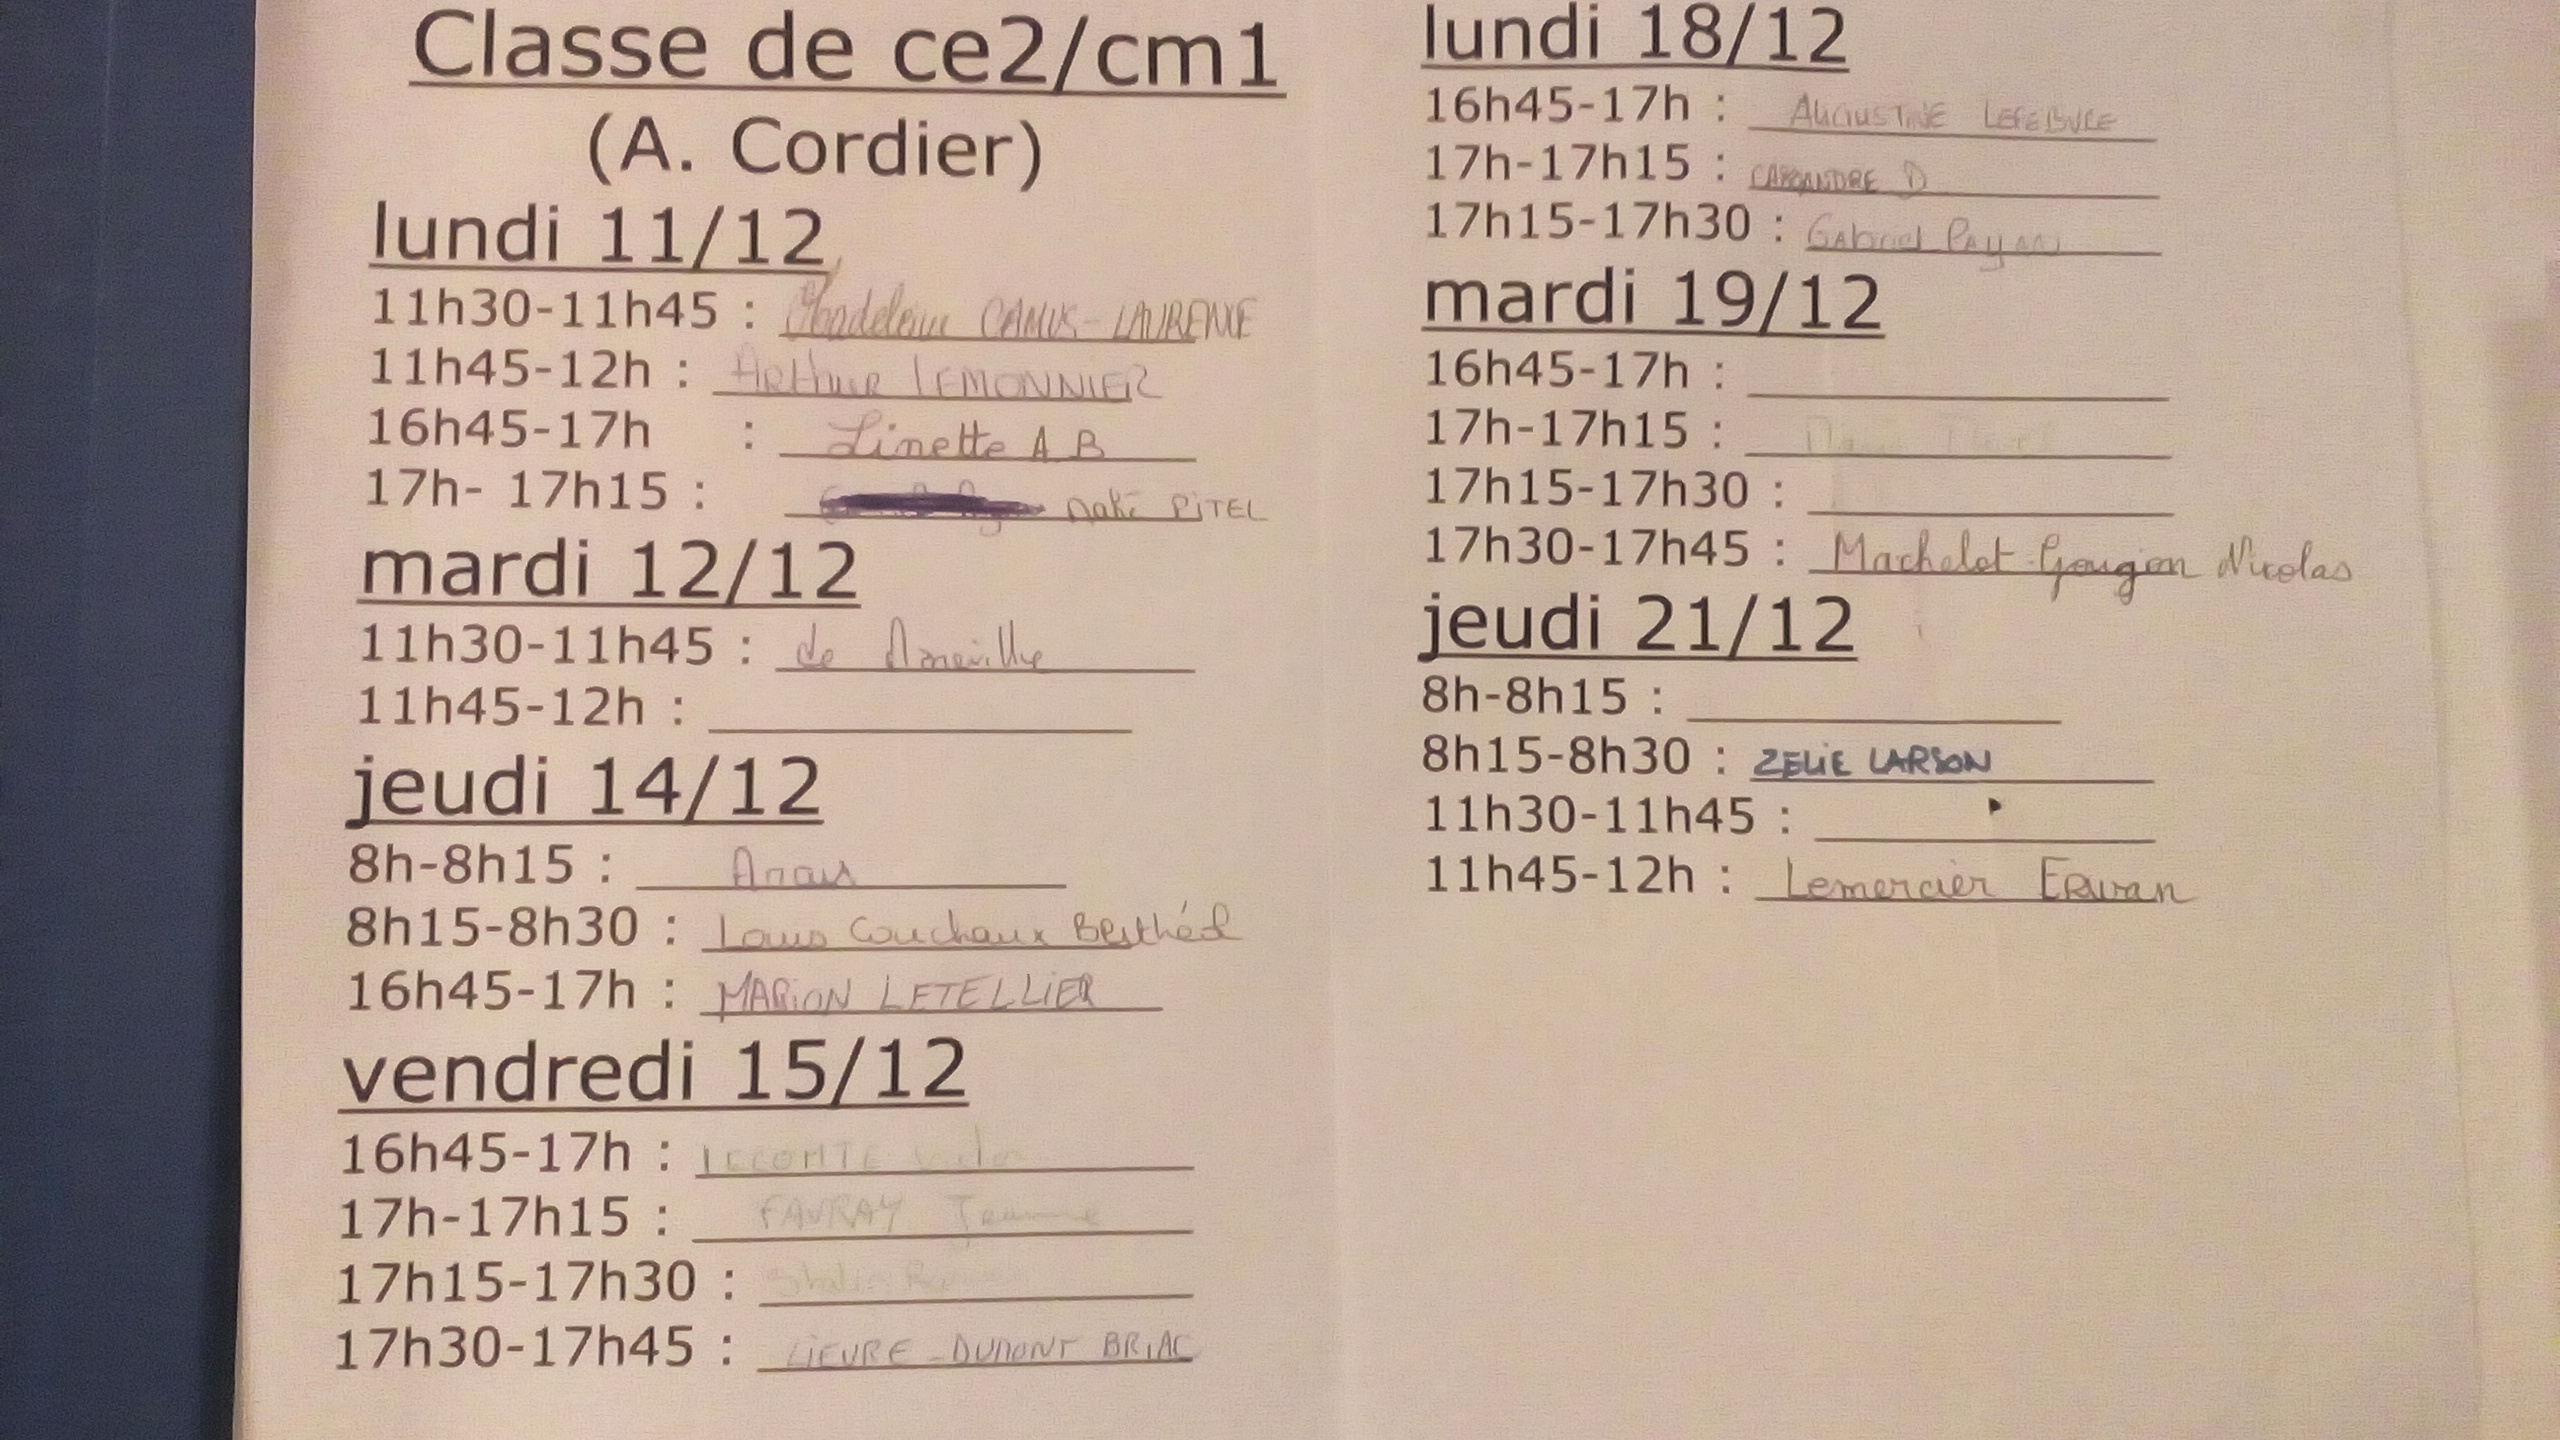 Classe de ce2/cm1
(A. Cordier)
lundi 11/12
11h30-11h45 : Madeleine CAMUS-LAURENCE
11h45-12h : Arthur LEMONNIER
16h45-17h : Linette A B
17h- 17h15 : PITEL
mardi 12/12
11h30-11h45 : de
11h45-12h :
jeudi 14/12
8h-8h15 : Anaïs
8h15-8h30 : Louis Couchaux
16h45-17h : MARION LETELLIER
vendredi 15/12
16h45-17h : LECOMTE
17h-17h15 : FAVRAY Jeanne
17h15-17h30 :
17h30-17h45 : LIEVRE-DUMONT BRIAC
lundi 18/12
16h45-17h : AUGUSTINE LEFEBVRE
17h-17h15 : CASSANDRE D
17h15-17h30 : Gabriel Payan
mardi 19/12
16h45-17h :
17h-17h15 :
17h15-17h30 :
17h30-17h45 : Machelot-Gougeon Nicolas
jeudi 21/12
8h-8h15 :
8h15-8h30 : ZELIE LARSON
11h30-11h45 :
11h45-12h : Lemercier Erwan